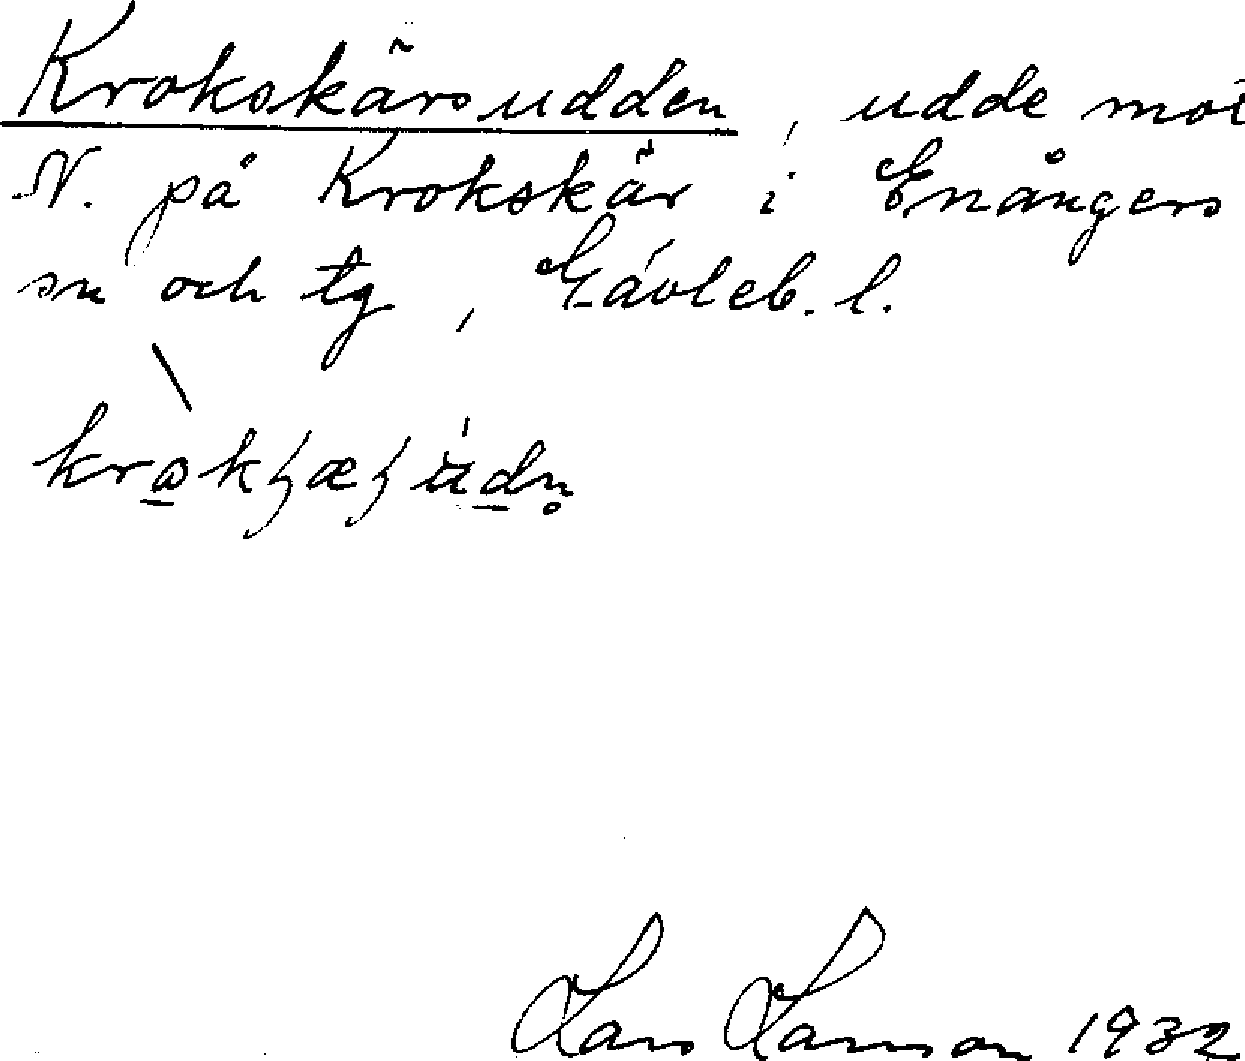 Krokskärsudden, udde mot
N. på Krokskär i Enångers
sn och tg, Gävleb. l.
Lars Larsson 1932